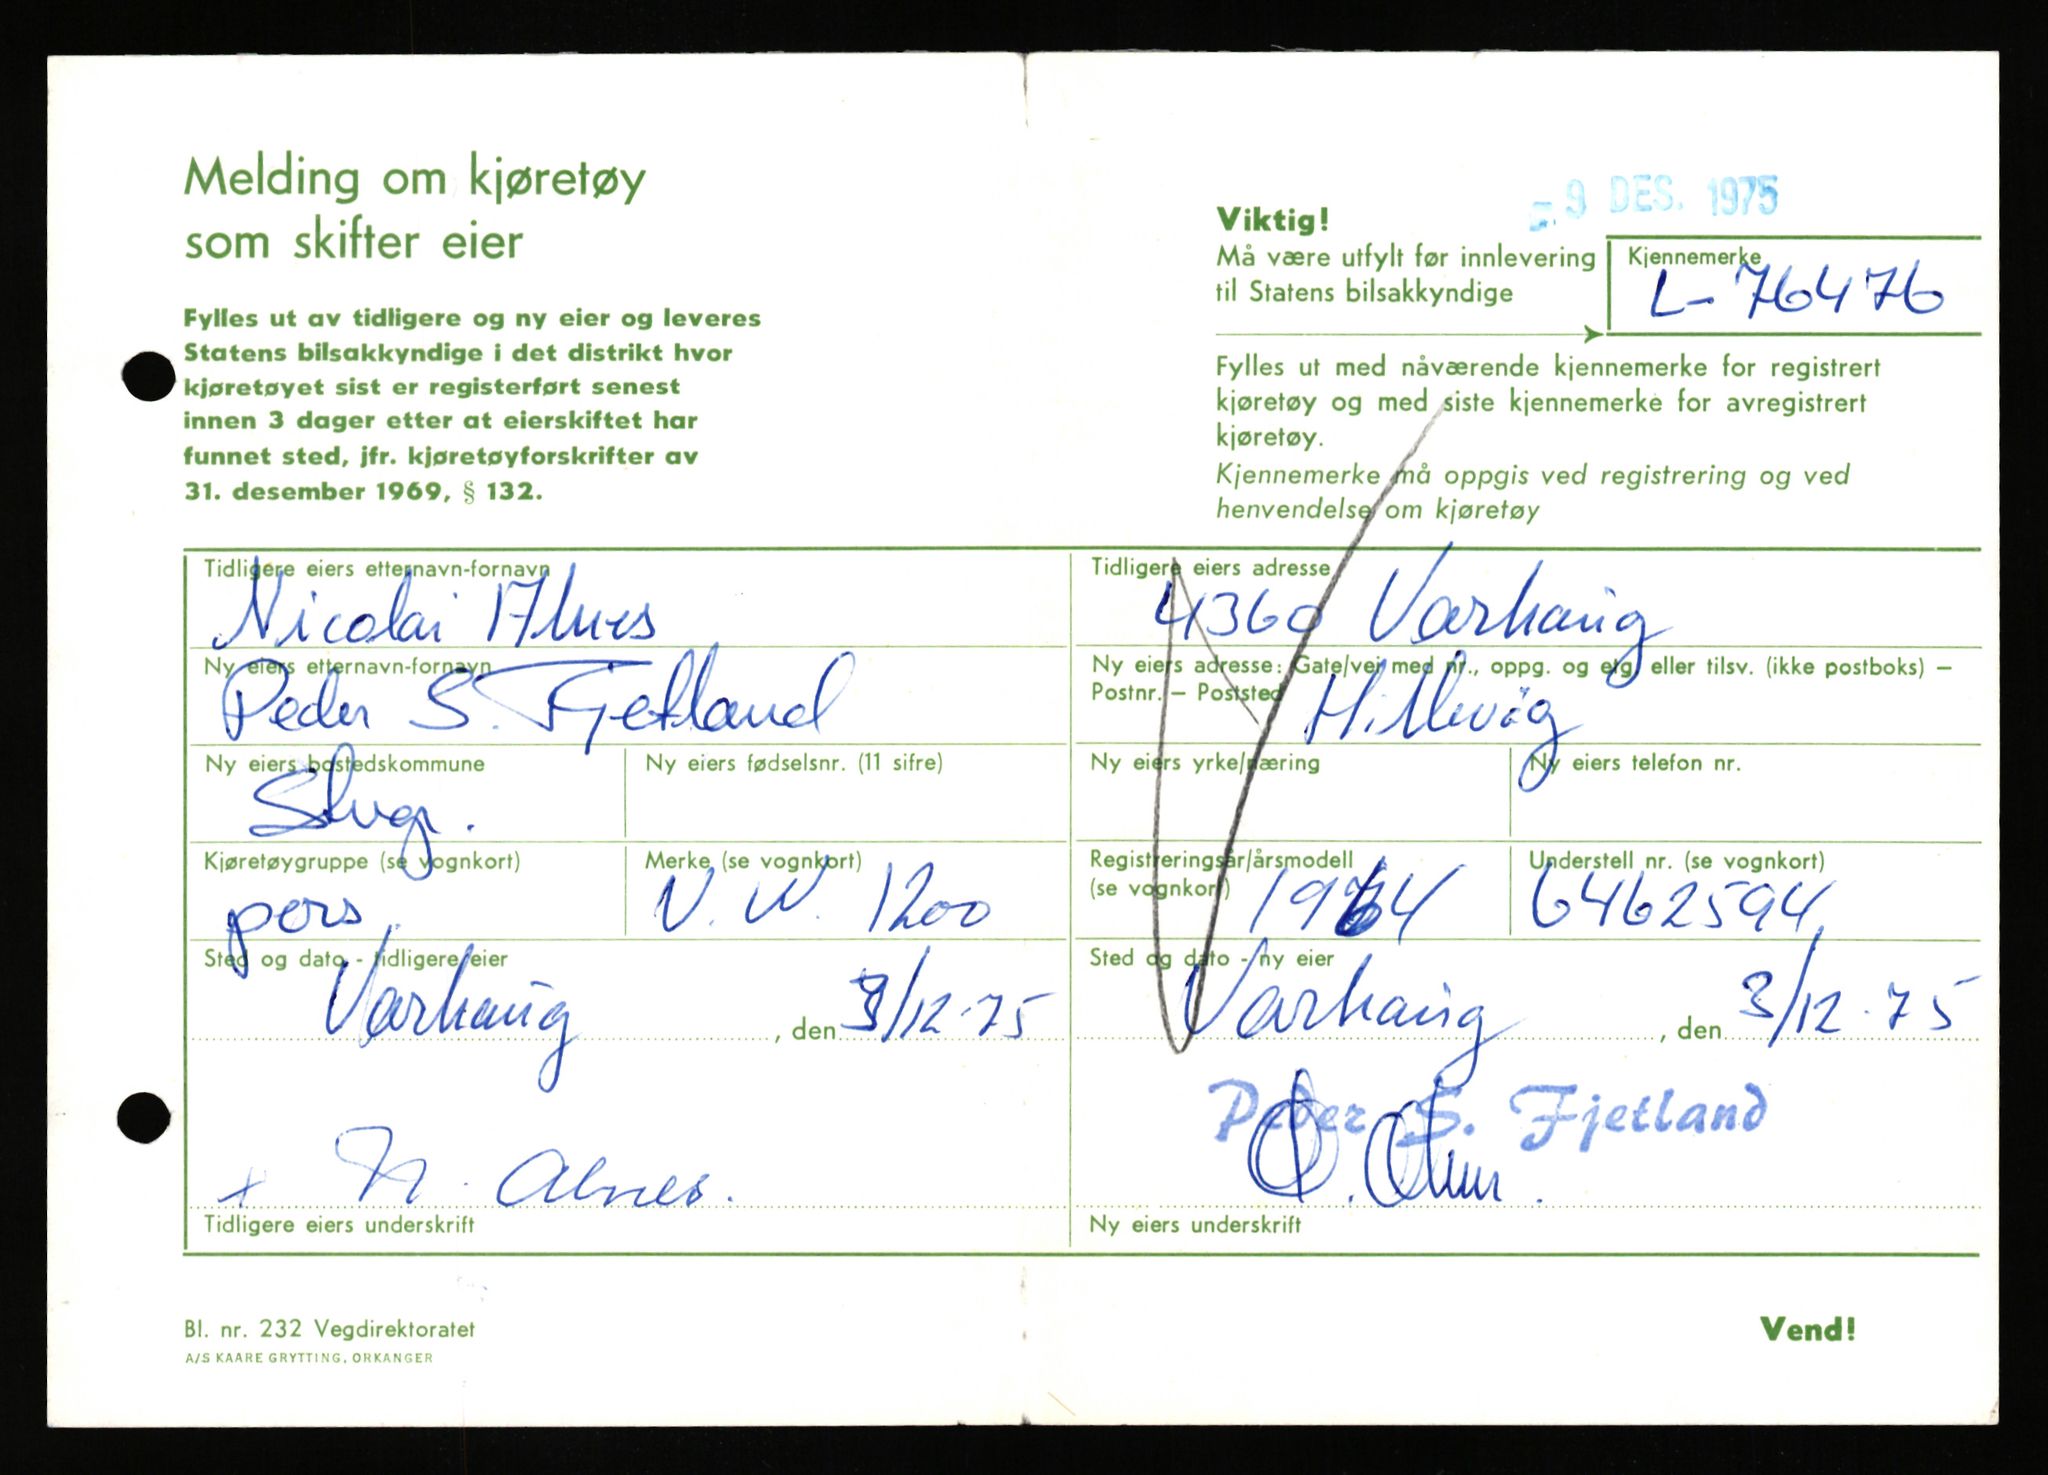 Melding om kjøretøy
som skifter eier
Fylles ut av tidligere og ny eier og leveres
Statens bilsakkyndige i det distrikt hvor
kjøretøyet sist er registerført senest
innen 3 dager etter at eierskiftet har
funnet sted, jfr. kjøretøyforskrifter av
31. desember 1969, § 132.
- 9 DES. 1975
Viktig!
Må være utfylt før innlevering
til Statens bilsakkyndige
Kjennemerke
L-76476
Fylles ut med nåværende kjennemerke for registrert
kjøretøy og med siste kjennemerke for avregistrert
kjøretøy.
Kjennemerke må oppgis ved registrering og ved
henvendelse om kjøretøy
Tidligere eiers etternavn-fornavn
Nicolai Alnes
Tidligere eiers adresse
4360 Varhaug
Ny eiers etternavn-fornavn
Peder S. Fjetland
Ny eiers adresse: Gate/vei med nr., oppg. og etg. eller tilsv. (ikke postboks) –
Postnr. – Poststed
Hillevåg
Ny eiers bostedskommune
Svgr.
Ny eiers fødselsnr. (11 sifre)
Ny eiers yrke/næring
Ny eiers telefon nr.
Kjøretøygruppe (se vognkort)
pers.
Merke (se vognkort)
V.W. 1200
Registreringsår/årsmodell
(se vognkort)
1964
Understell nr. (se vognkort)
6462594
Sted og dato - tidligere eier
Varhaug, den 3/12-75
Sted og dato - ny eier
Varhaug, den 3/12-75
x N. Alnes.
Tidligere eiers underskrift
Peder S. Fjetland
Ny eiers underskrift
Bl. nr. 232 Vegdirektoratet
A/S KAARE GRYTTING, ORKANGER
Vend!